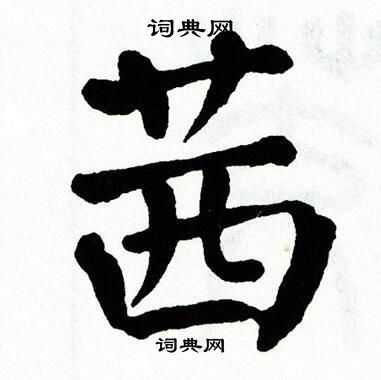 词典网
茜
词典网